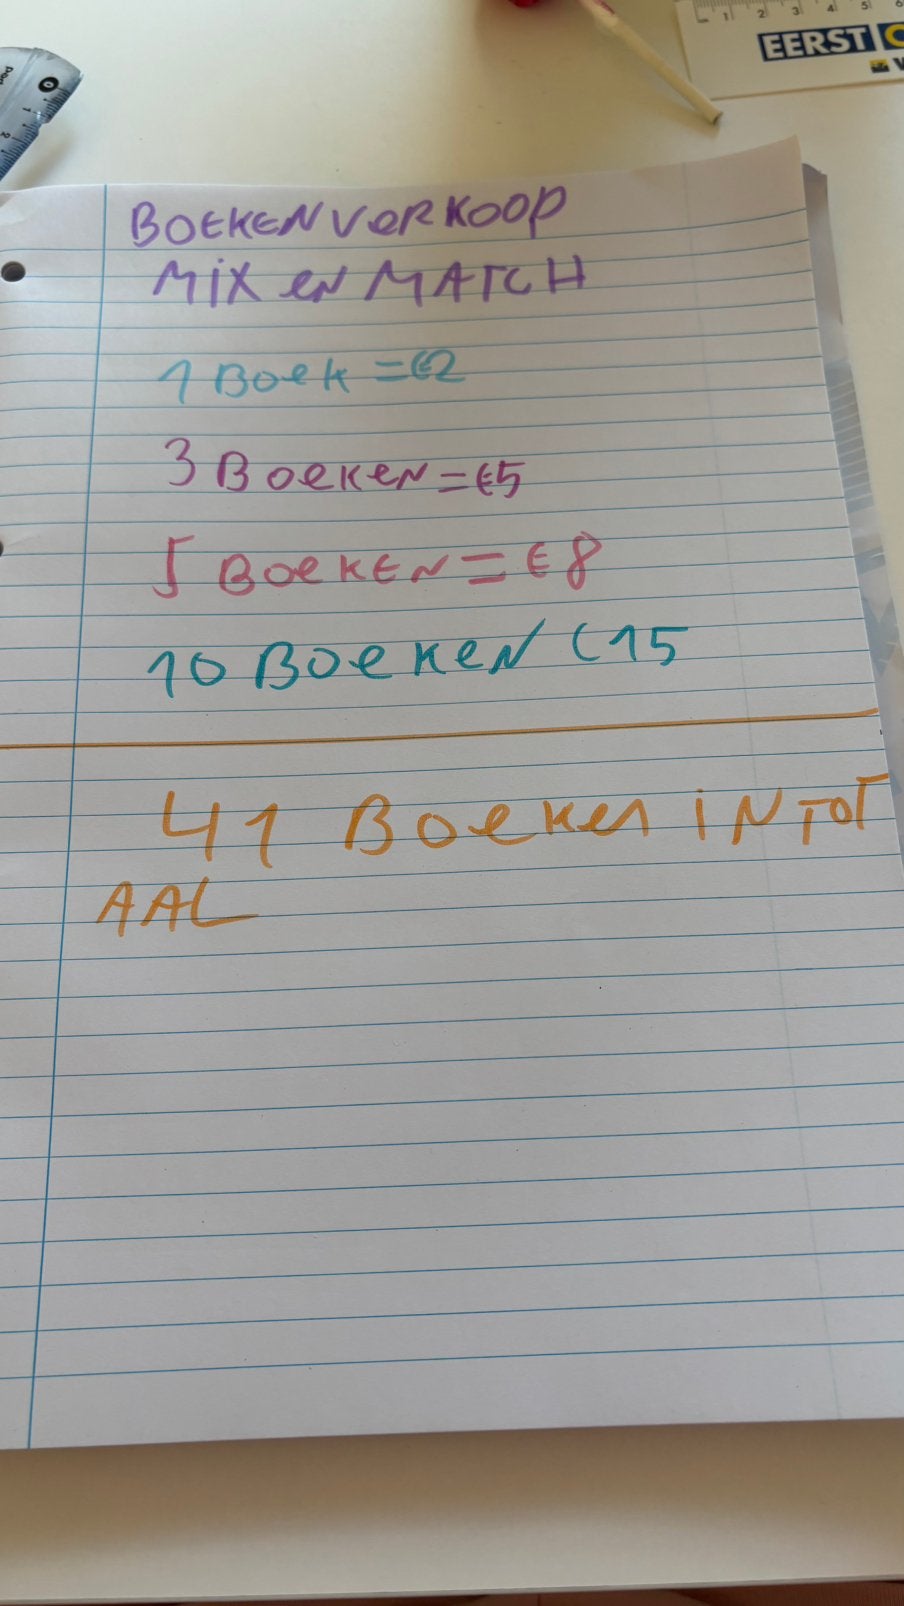 1 2 3 4 5 6
EERST
0 1 2
BOEKENVERKOOP
MIX EN MATCH
1 BOEK = €2
3 BOEKEN = €5
5 BOEKEN = €8
10 BOEKEN €15
41 BOEKEN IN TOT
AAL